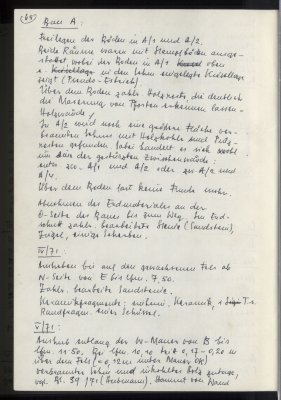 (63)
Bau A:
Freilegen der Böden in A/1 und A/2.
Beide Räume waren mit Stampfböden ausge-
stattet wobei der Boden in A/1 oben
in den Lehm eingelegte Kiesellage
zeigt (Terrazzo-Estrich)
Über dem Boden zahlr. Holzreste die deutlich
die Maserung von Pfosten erkennen lassen -
Holzwände!
In A/2 wird noch eine größere Fläche ver-
brannten Lehms mit Holzkohle und Putz-
resten gefunden, dabei handelt es sich wohl
um der gestürzten Zwischenwände.
entw. zw. A/1 und A/2 oder zw. A/2 und
A/4.
Über dem Boden fast keine Funde mehr.
Abnehmen des Erdmaterials an der
O-Seite des Baues bis zum Weg. Im Erd-
schutt zahlr. bearbeitete Steine (Sandstein),
Ziegel, einige Scherben.
IV/71:
Antreffen bei auf den gewachsenen Fels ab
N-Seite von E bis lfm. 7,50.
Zahlr. bearbeitete Sandsteine.
Keramikfragmente: einheim. Keramik, 1 T.s.
Randfragm. einer Schüssel.
V/71:
Aushub entlang der W-Mauer von B bis
lfm. 11,50. Bei lfm. 10,10 tritt 0,17-0,20 m
über dem Fels (-0,12m unter Mauer UK)
verbrannter Lehm und verkohltes Holz zutage,
vgl. Bl. 39/71 (Hartmann). Stammt von Wand